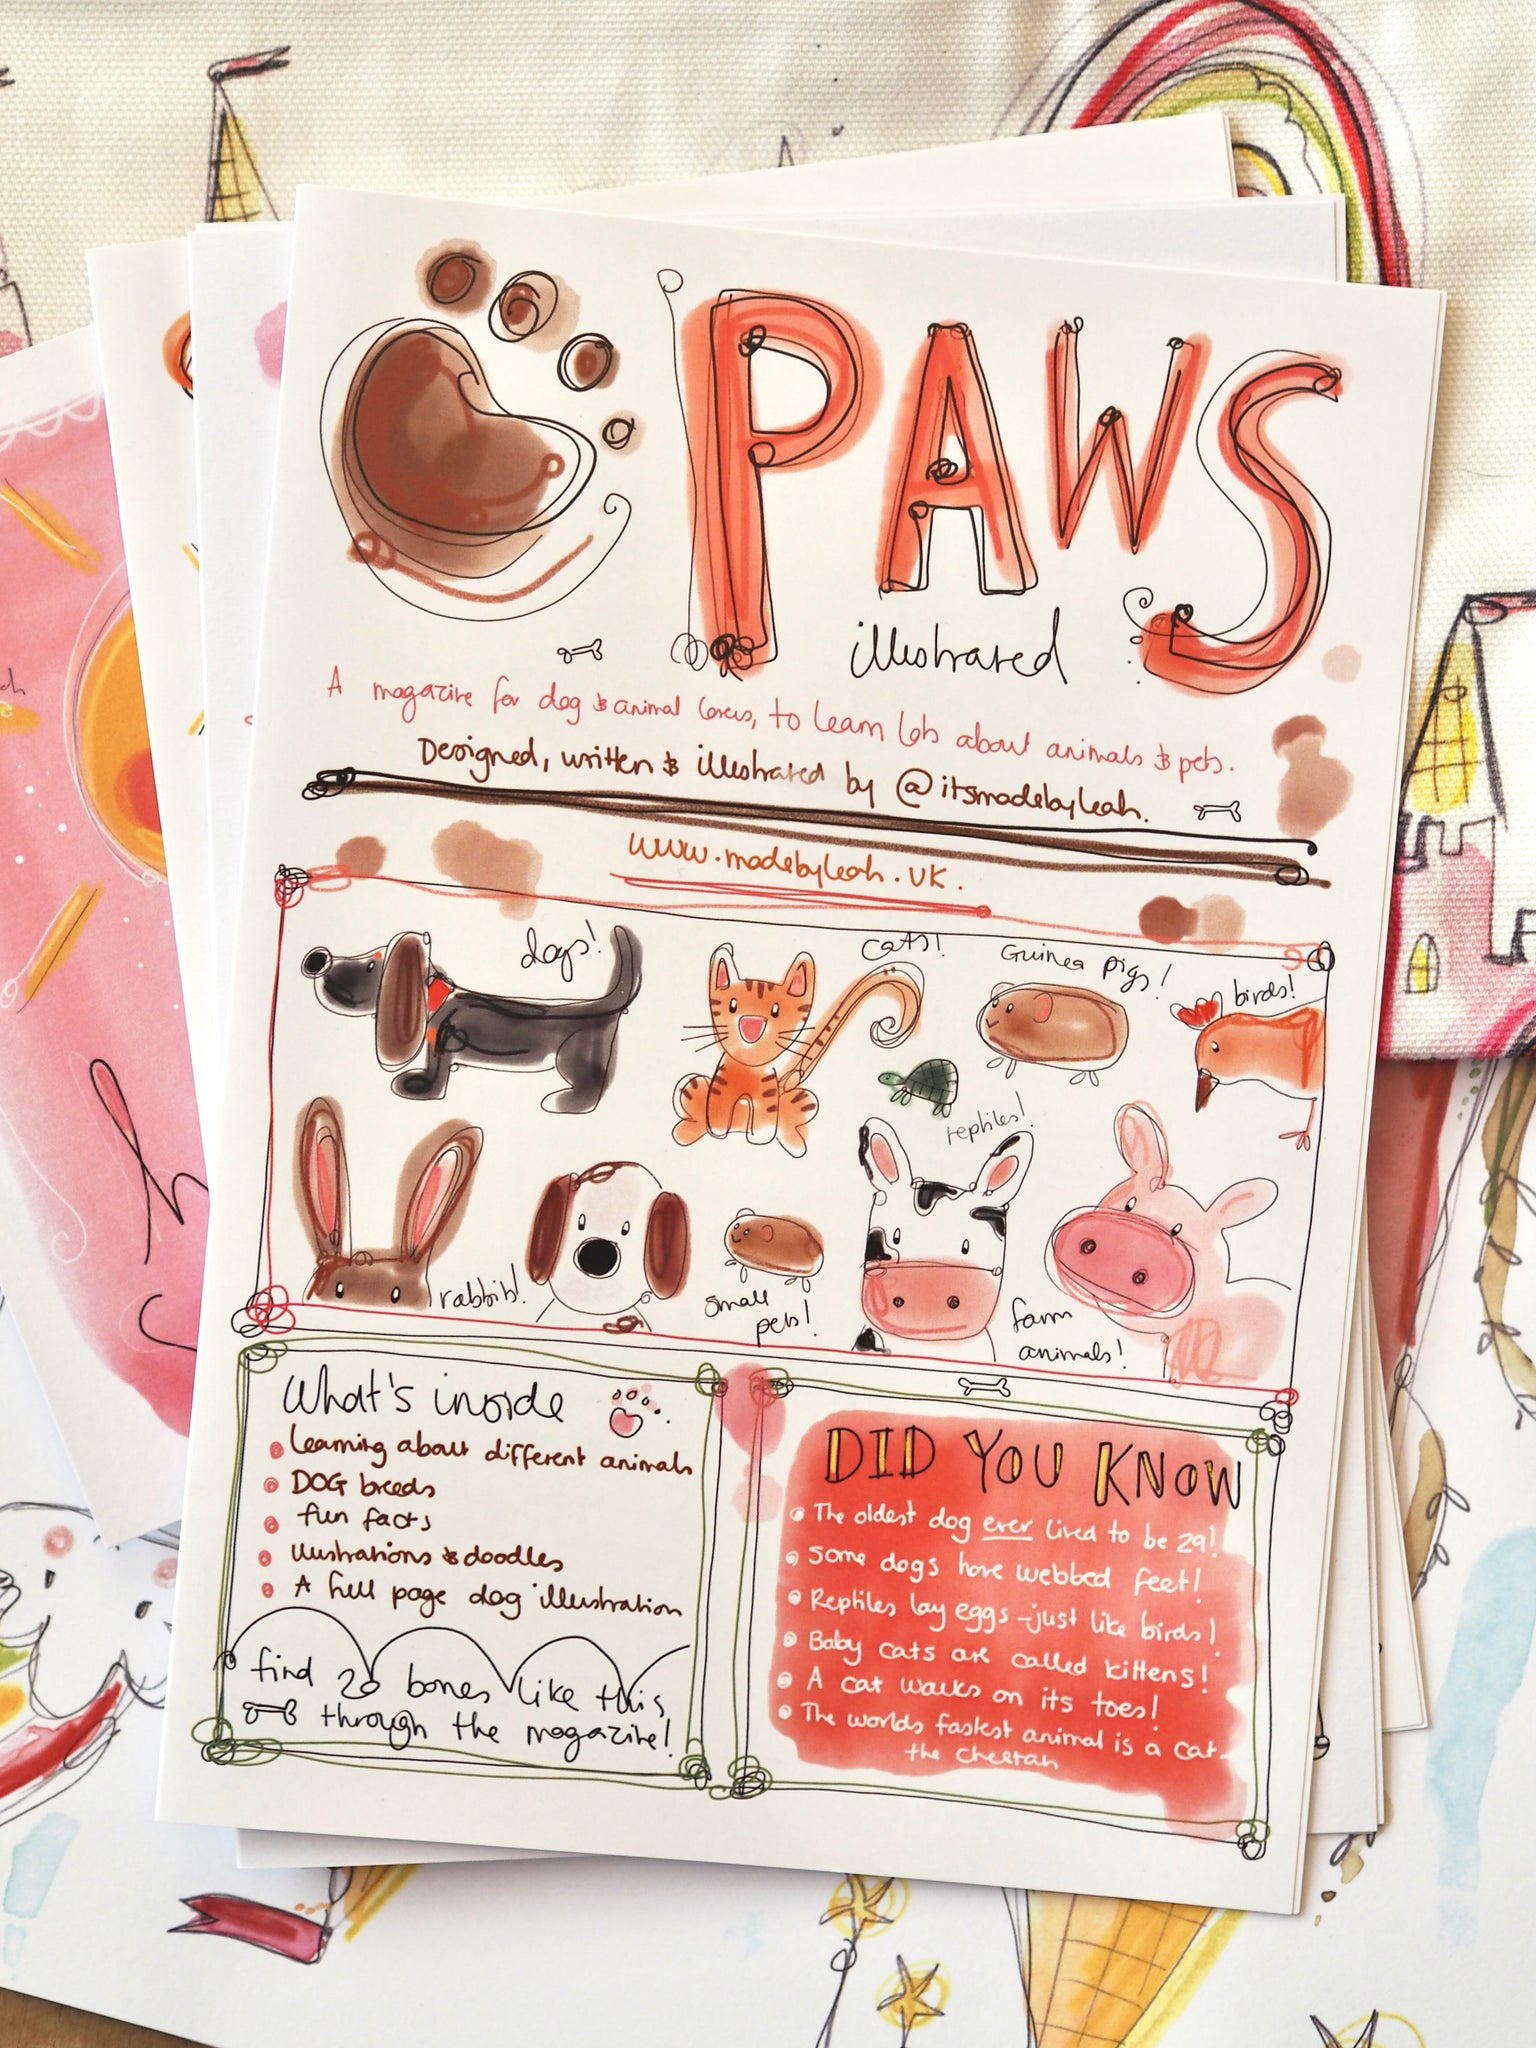 PAWS
illustrated
A magazine for dog & animal lovers, to learn lots about animals & pets.
Designed, written & illustrated by @itsmadebyleah.
www.madebyleah.uk.
dogs!
cats!
Guinea pigs!
birds!
reptiles!
rabbits!
small
pets!
farm
animals!
What's inside
learning about different animals
DOG breeds
fun facts
illustrations & doodles
A full page dog illustration
find 20 bones like this
through the magazine!
DID YOU KNOW
The oldest dog ever lived to be 29!
Some dogs have webbed feet!
Reptiles lay eggs - just like birds!
Baby cats are called kittens!
A cat walks on its toes!
The worlds fastest animal is a cat -
the cheetah